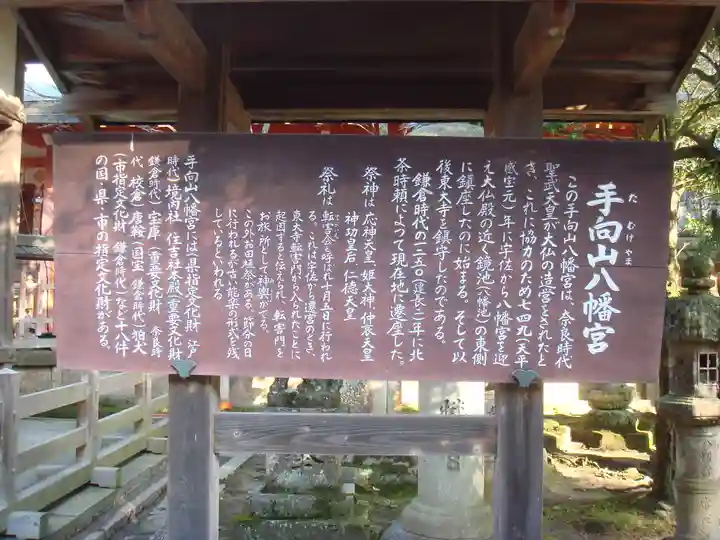 手向山八幡宮
た むけ やま
この手向山八幡宮は、奈良時代
聖武天皇が大仏の造営をされたと
き、これに協力のため七四九(天平
感宝元)年に宇佐から八幡宮を迎
え大仏殿の近く鏡池(八幡池)の東側
に鎮座したのに始まる。そして以
後東大寺を鎮守したのである。
鎌倉時代の一二五〇(建長二)年に北
条時頼によって現在地に遷座した。
祭神は 応神天皇 姫大神 仲哀天皇
神功皇后 仁徳天皇
祭礼は 転害会と呼ばれ十月五日に行われ
る。これは宇佐から遷宮のとき、
東大寺転害門から入られたことに
起因すると伝えられ、転害門を
お旅所として神輿がでる。
この外お田植祭がある。節分の日
に行われるが古い能楽の形式を残
しているといわれる
手向山八幡宮には、県指定文化財 江戸
時代)境内社 住吉社本殿(重要文化財
鎌倉時代) 宝庫 (重要文化財 奈良時
代 校倉) 唐鞍(国宝 鎌倉時代) 狛犬
(市指定文化財 鎌倉時代)など十八件
の国・県・市の指定文化財がある。